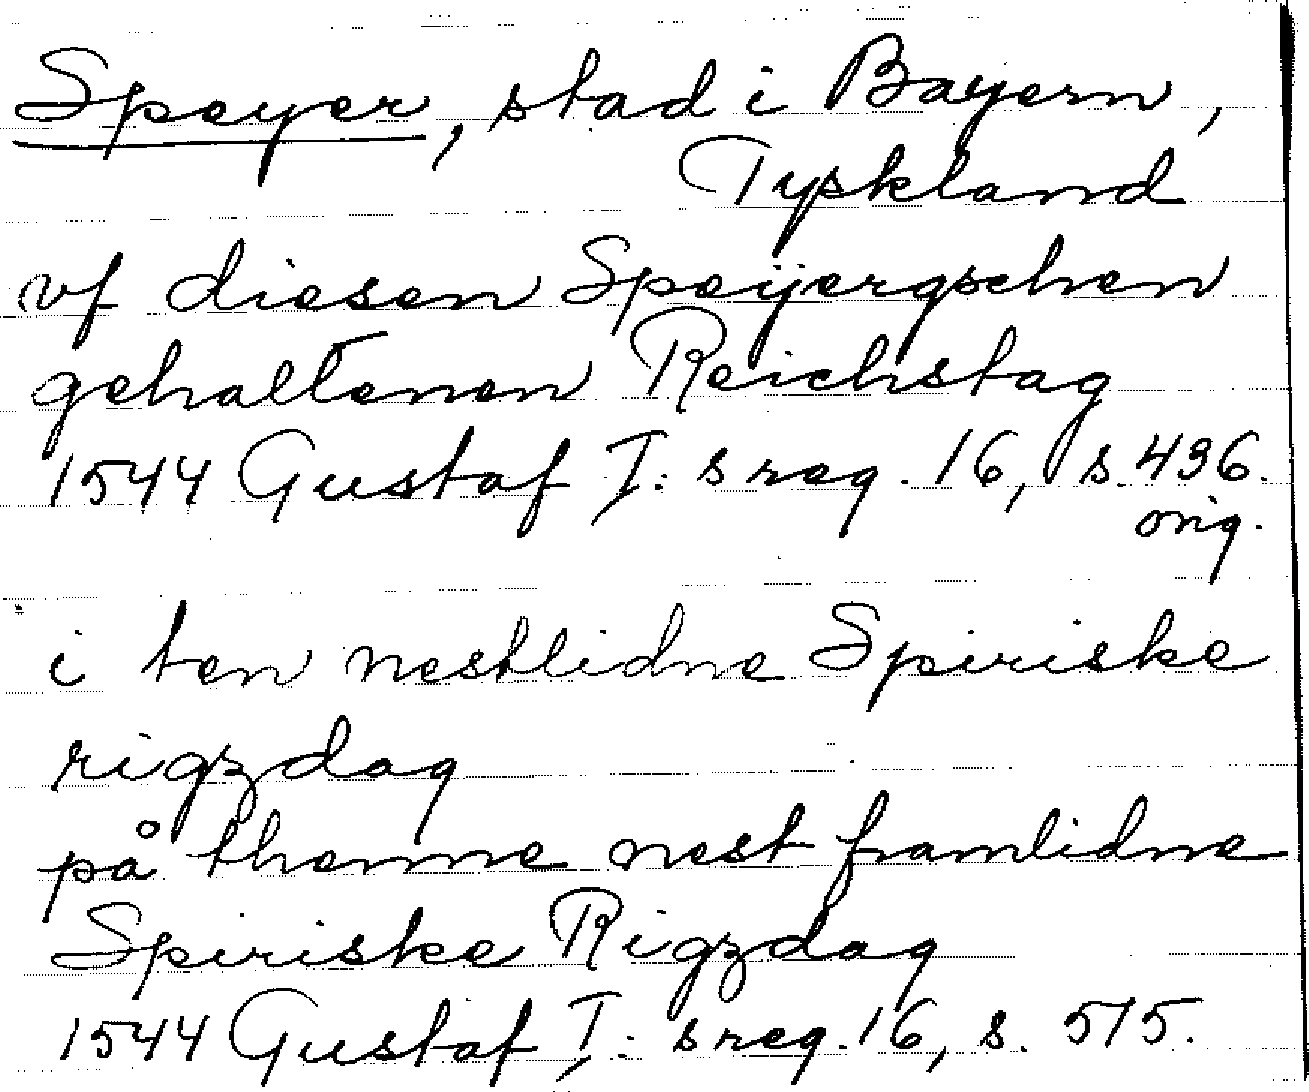 Speyer, stad i Bayern,
Tyskland
vf diesen Speÿergschen
gehaltenen Reichstag
1544 Gustaf I: s reg. 16, s. 496.
orig.
i ten nestlidne Spiriske
rigzdag
på thenne nest framlidne
Spiriske Rigzdag
1544 Gustaf I: s reg. 16, s. 575.